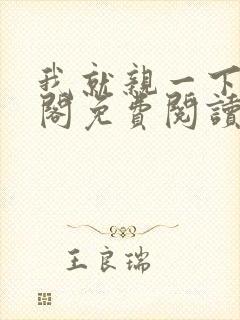 我就親一下
閣免費閱讀
王良瑞